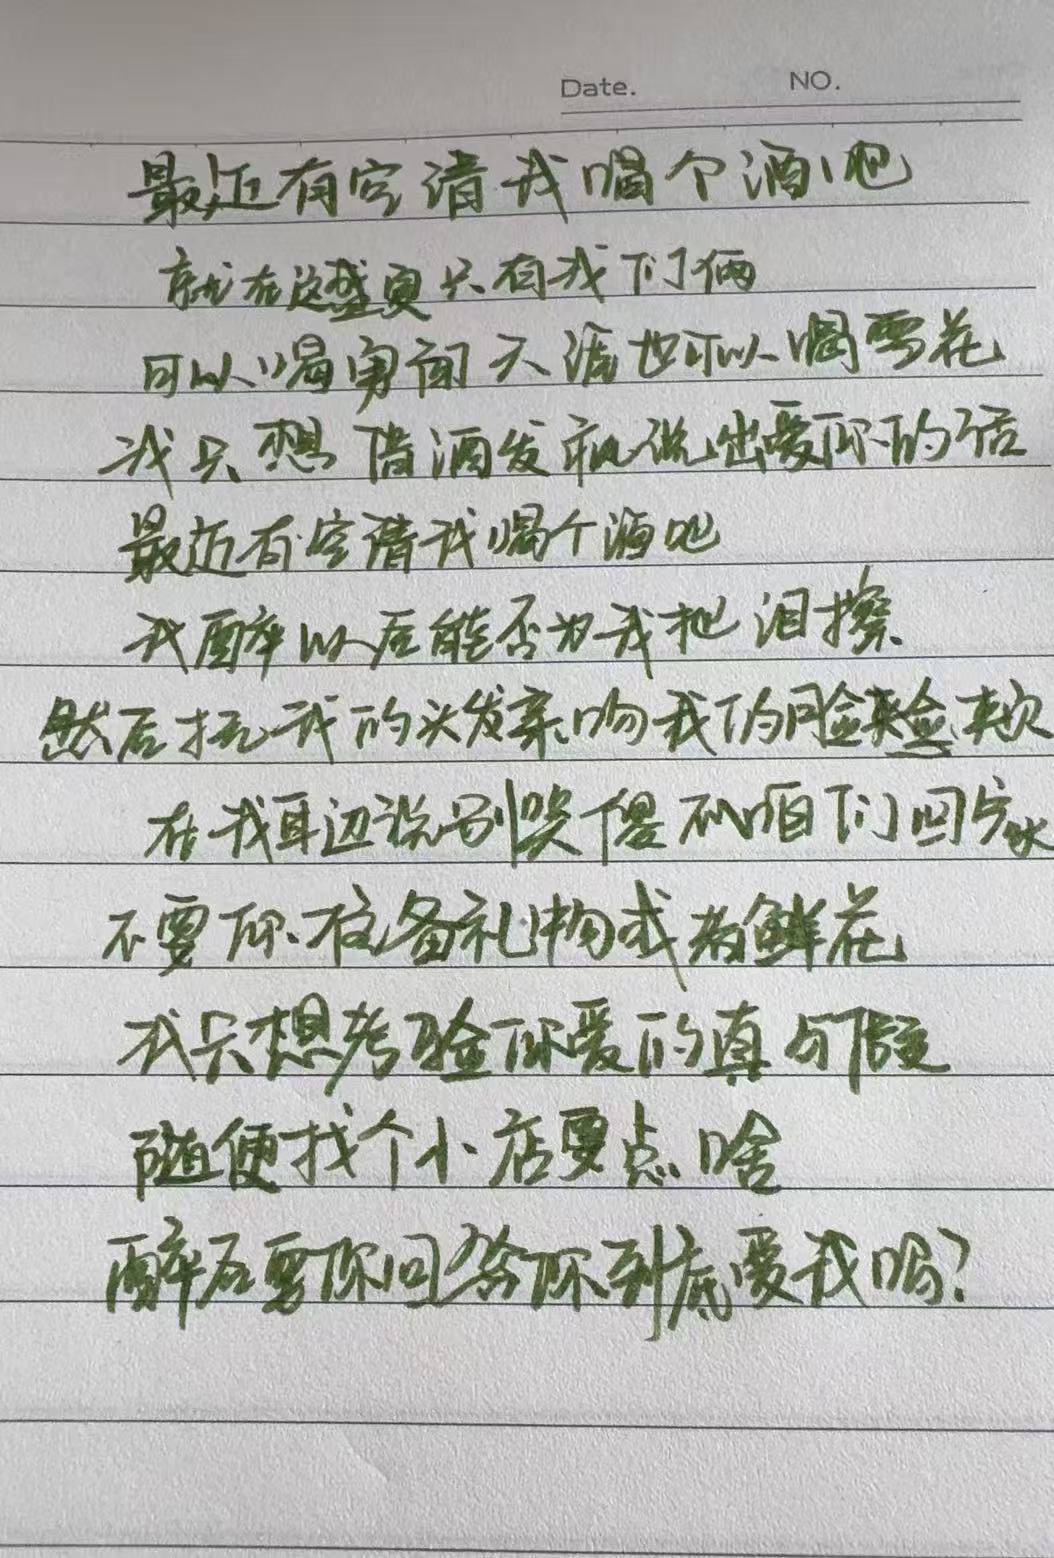 Date. NO.
最近有空请我喝个酒吧
就在这盛夏只有我们俩
可以喝勇闯天涯也可以喝雪花
我只想借酒发疯说出爱你的话
最近有空请我喝个酒吧
我醉以后能否为我把泪擦
然后抚我的头发亲吻我的脸颊
在我耳边说别哭傻瓜咱们回家
不要你准备礼物或者鲜花
我只想考验你爱的真与假
随便找个小店要点啥
醉后要你回答你到底爱我吗?